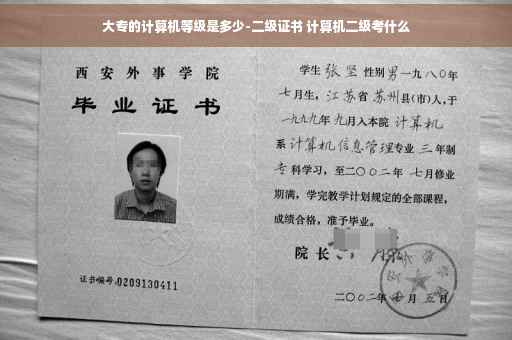 大专的计算机等级是多少-二级证书 计算机二级考什么
西安外事学院
毕业证书
证书编号:0209130411
学生 张坚 性别 男 一九八〇年
七月生, 江苏省 苏州县(市)人,于
一九九九年 九月入本院 计算机
系 计算机信息管理专业 三 年制
专科学习, 至二〇〇二年 七月修业
期满, 学完教学计划规定的全部课程,
成绩合格, 准予毕业。
院长
二〇〇二年 月 五日